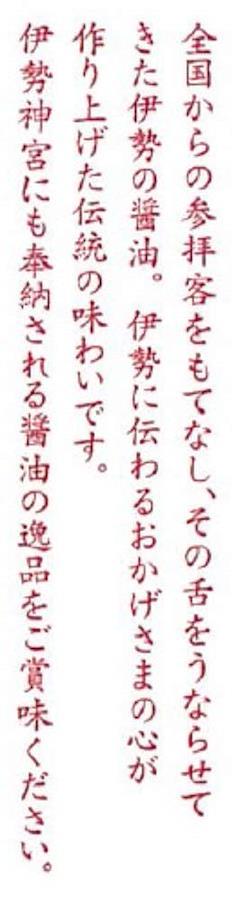 全国からの参拝客をもてなし、その舌をうならせて
きた伊勢の醤油。伊勢に伝わるおかげさまの心が
作り上げた伝統の味わいです。
伊勢神宮にも奉納される醤油の逸品をご賞味ください。